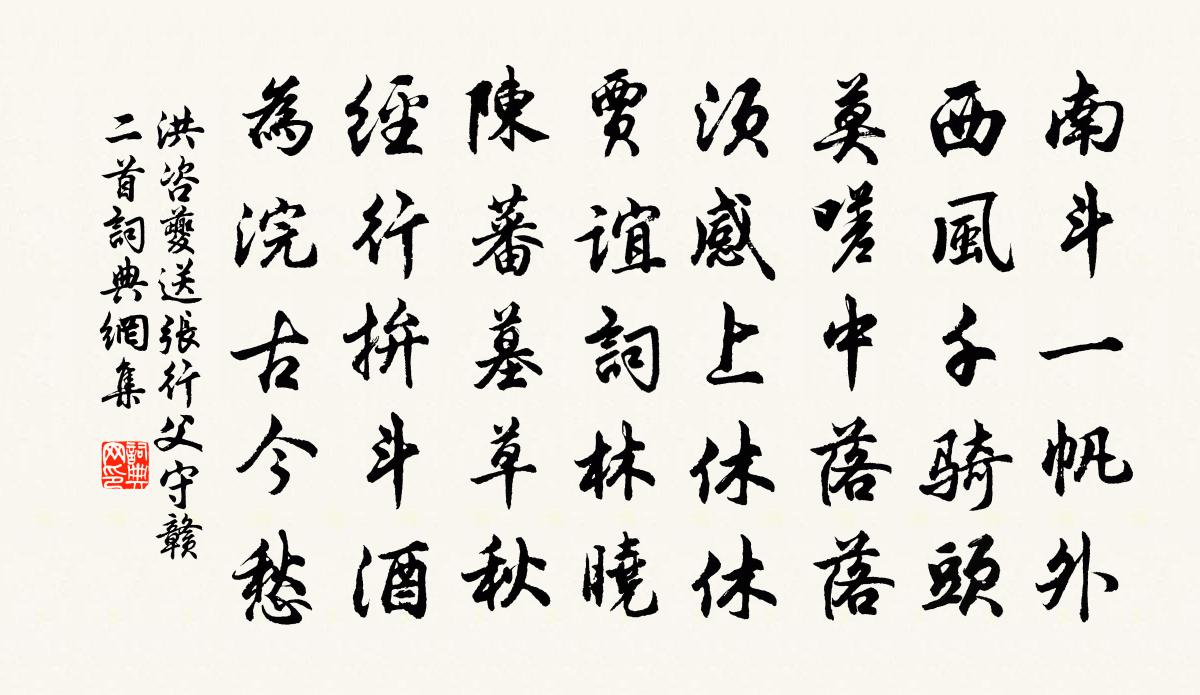 南斗一帆外
西風千騎頭
莫嗟中落落
須感上休休
賈誼詞林曉
陳蕃墓草秋
經行拚斗酒
為浣古今愁
洪咨夔送張行父守贛
二首詞典網集
詞典
网印